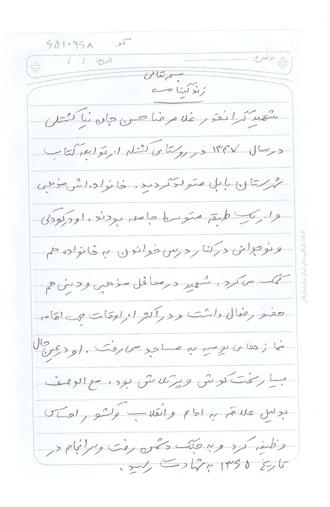 کد ۶۵۱۰۹۶۸
موضوع: تاریخ: / /
بسمه تعالی
زندگینامه
شهید گرانقدر غلامرضا حسن جان نیا کشتلی
در سال ۱۳۴۷ در روستای کشتله از توابع گتاب
شهرستان بابل متولد گردید. خانواده اش مذهبی
و از یک طبقه متوسط جامعه بودند. او در کودکی
و نوجوانی در کنار درس خواندن به خانواده هم
کمک می کرد. شهید در محافل مذهبی و دینی هم
حضور فعال داشت و در اکثر اوقات جهت اقامه
نمازهای یومیه به مساجد می رفت. او در عین حال
بسیار سخت کوش و پرتلاش بود. مع الوصف
بدلیل علاقه به امام و انقلاب و کشور احساس
وظیفه کرد و به جنگ دشمن رفت و سرانجام در
تاریخ ۱۳۶۵ به شهادت رسید.